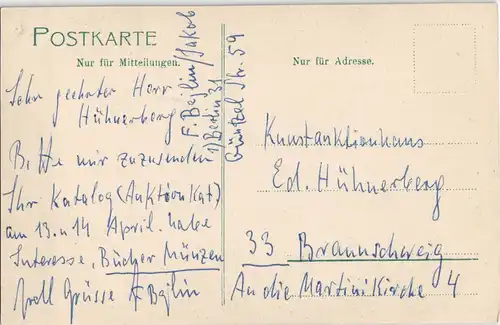 POSTKARTE
Nur für Mitteilungen.
Sehr geehrter Herr
Hühnerberg
Bitte mir zuzusenden
Ihr Katalog (Auktionkat)
am 13. u 14 April. habe
Interesse, Bücher Münzen
Grüsse F Bejlin
F. Bejlin / Jakob
1) Berlin 31
Günzel Str. 59
Nur für Adresse.
Kunstauktionhaus
Ed. Hühnerberg
33 Braunschweig
An die Martini Kirche 4